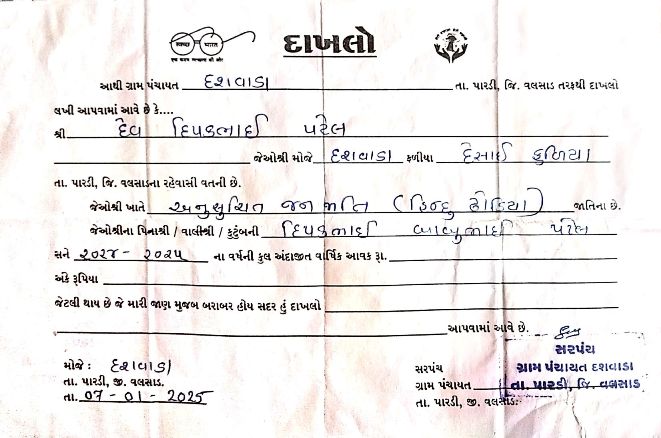 સ્વચ્છ ભારત
એક કદમ સ્વચ્છતા કી ઓર
દાખલો
આથી ગ્રામ પંચાયત દશવાડા તા. પારડી, જિ. વલસાડ તરફથી દાખલો
લખી આપવામાં આવે છે કે....
શ્રી દેવ દિપકભાઈ પટેલ
જેઓશ્રી મોજે દશવાડા ફળીયા દેસાઈ ફળિયા
તા. પારડી, જિ. વલસાડના રહેવાસી વતની છે.
જેઓશ્રી ખાતે અનુસુચિત જન જાતિ (હિન્દુ ઢોડિયા) જાતિના છે.
જેઓશ્રીના પિનાશ્રી / વાલીશ્રી / કુટુંબની દિપકભાઈ બાબુભાઈ પટેલ
સને ૨૦૨૪- ૨૦૨૫ ના વર્ષની કુલ અંદાજીત વાર્ષિક આવક રૂા.
અંકે રૂપિયા
જેટલી થાય છે જે મારી જાણ મુજબ બરાબર હોય સદર હું દાખલો
આપવામાં આવે છે.
સરપંચ
મોજે : દશવાડા સરપંચ ગ્રામ પંચાયત દશવાડા
તા. પારડી, જી. વલસાડ. ગ્રામ પંચાયત તા. પારડી, જિ. વલસાડ
તા. 07 - 01 - 2025 તા. પારડી, જી. વલસાડ.